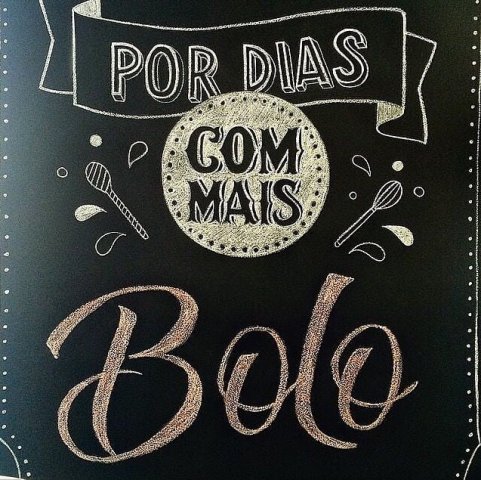 POR DIAS
COM
MAIS
Bolo